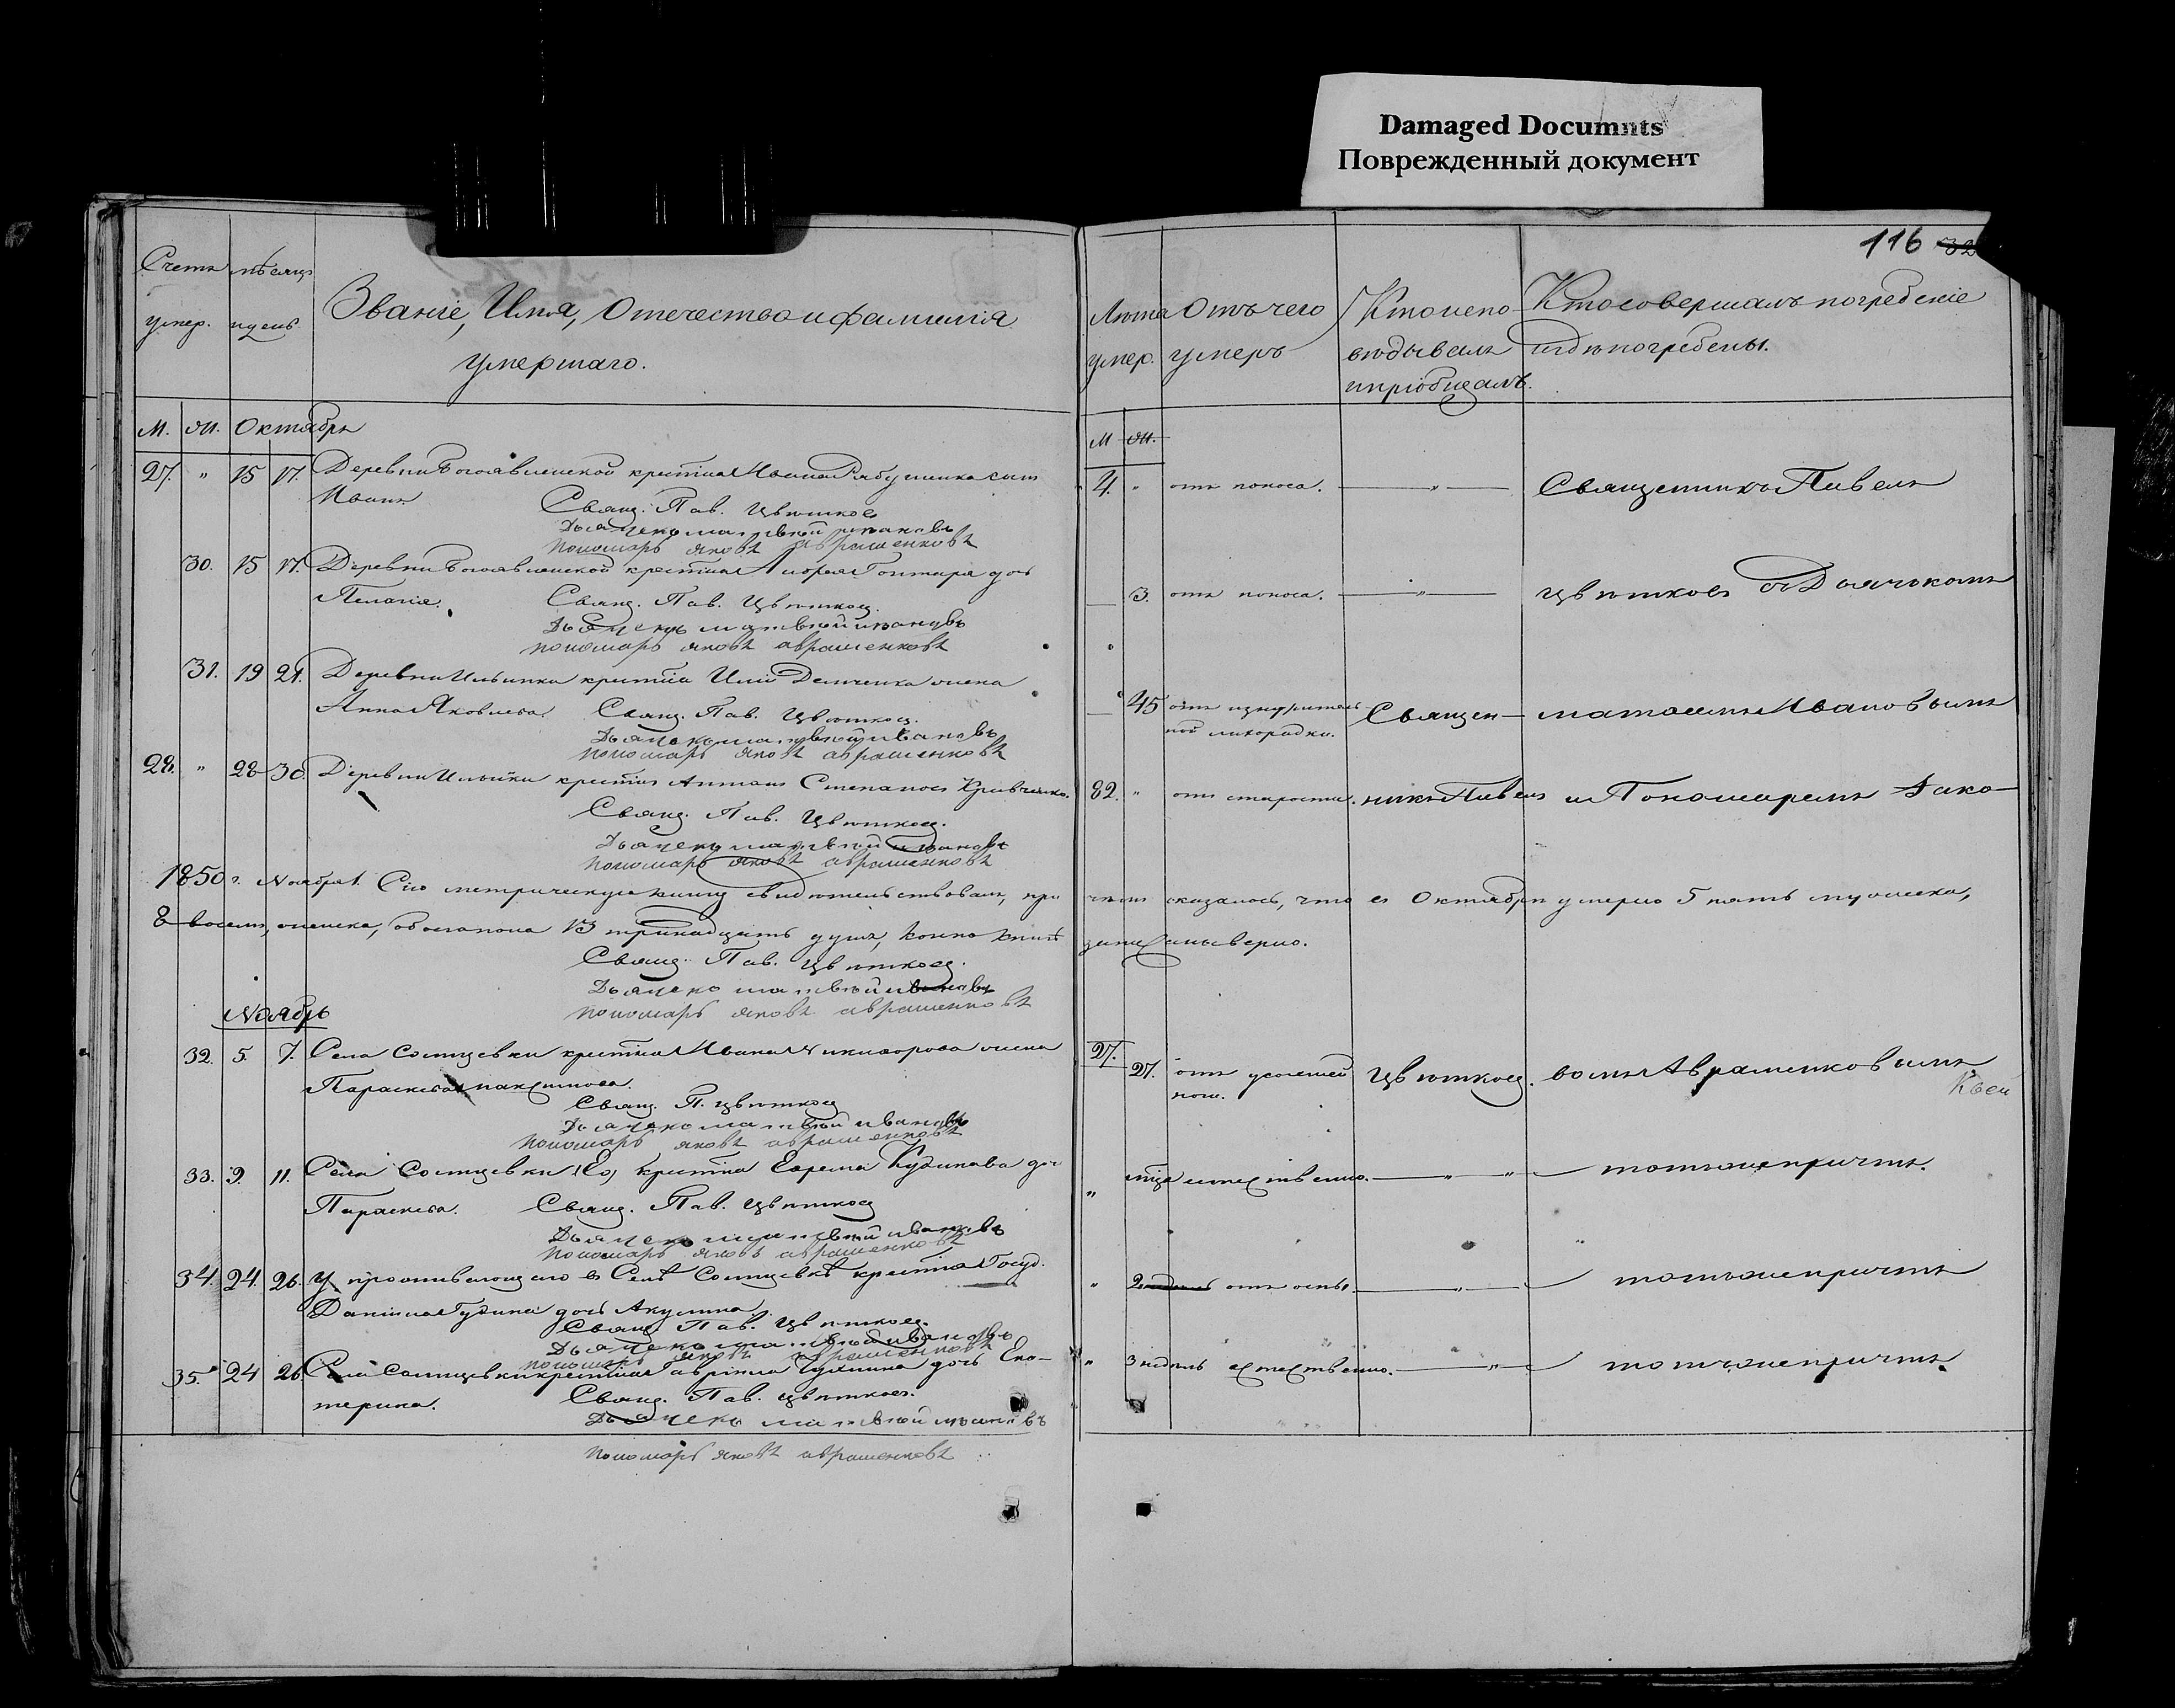 Damaged Documnts
Поврежденный документ
116 32
Счетъ умер.
мѣсяцъ и день
Званіе, Имя, Отчество и фамилія
умершаго.
М. Ж. Октябрь
27. " 15 17. Деревни Богоявленской крестіян Ивана Рябушенка сынъ
Иванъ. Свящ. Пав. Цвѣтковъ
Дьячекъ матвѣй ивановъ
пономарь яковъ авраменковъ
30. 15 17. Деревни Богоявленской крестіян гонтаря дочь
Пелагія. Свящ. Пав. Цвѣтковъ.
Дьячекъ матвѣй ивановъ
пономарь яковъ авраменковъ
31. 19 21. Деревни Ильинки крестіа Иліи Демченка жена
Анна Яковлева. Свящ. Пав. Цвѣтковъ.
Дьячекъ матвѣй ивановъ
пономарь яковъ авраменковъ
28. " 28 30. Деревни Ильинки крестіян Антонъ Степановъ Кривченко.
Свящ. Пав. Цвѣтковъ.
Дьячекъ матвѣй ивановъ
пономарь яковъ авраменковъ
1850 г. Ноября 1. Сію метрическую книгу свидѣтельствовали, при
8 восемь, женска, обоего пола 13 тринадцать душъ,
Свящ. Пав. Цвѣтковъ.
Дьячекъ матвѣй ивановъ
пономарь яковъ авраменковъ
Ноябрь
32. 5. 7. Села Солнцевки крестіян Ивана Никифорова жена
Параскева
Свящ. П. Цвѣтковъ
Дьячекъ матвѣй ивановъ
пономарь яковъ авраменковъ
33. 9. 11. Села Солнцевки крестіян Ефрема Кудинова доч
Параскева. Свящ. Пав. Цвѣтковъ
Дьячекъ матвѣй ивановъ
пономарь яковъ авраменковъ
34. 24. 26. У проживающаго въ Селѣ Солнцевкѣ крестіян Госуд.
Даніила дочь Акулина.
Свящ. Пав. Цвѣтковъ.
Дьячекъ матвѣй ивановъ
пономарь яковъ авраменковъ
35. 24 26 Села Солнцевки крестіян Гавріила дочь Ека-
терина. Свящ. Пав. Цвѣтковъ.
Дьячекъ матвѣй ивановъ
пономарь яковъ авраменковъ
Лѣта умер.
Отъ чего умеръ
Кто испо-
вѣдывалъ
и пріобщалъ.
Кто совершалъ погребеніе
и гдѣ погребены.
М Ж.
4. " отъ поноса. " Священникъ Павелъ
3. отъ поноса. " Цвѣтковъ съ Дьячкомъ
45 отъ изнурител-
ной лихорадки. Священ- матвеемъ Ивановымъ
82. " отъ старости. никъ Павелъ и Пономаремъ Яко-
чемъ оказалось, что въ Октябрѣ умерло 5 пять мужеска,
записаны вѣрно.
27. 27. отъ Цвѣтковъ. вомъ Авраменковымъ
" естественно. " " тотъ же причтъ.
" отъ оспы. " тотъ же причтъ
" 3 недѣль естественно. " тотъ же причтъ.